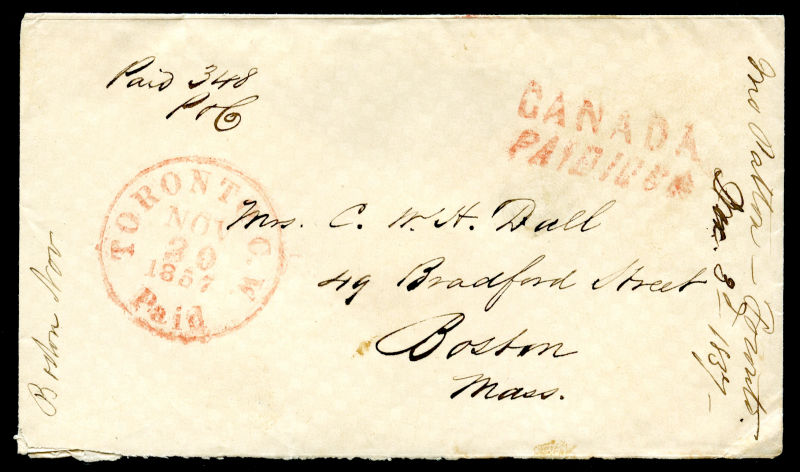 Paid 348
P.O.C
CANADA
PAID 10Cts
TORONTO. C.W.
NOV
20
1857
Paid
Mrs. C. W. H. Dall
49 Bradford Street
Boston
Mass.
Boston Nov
Jno – Toronto.
Dec. 3d – 1857 –